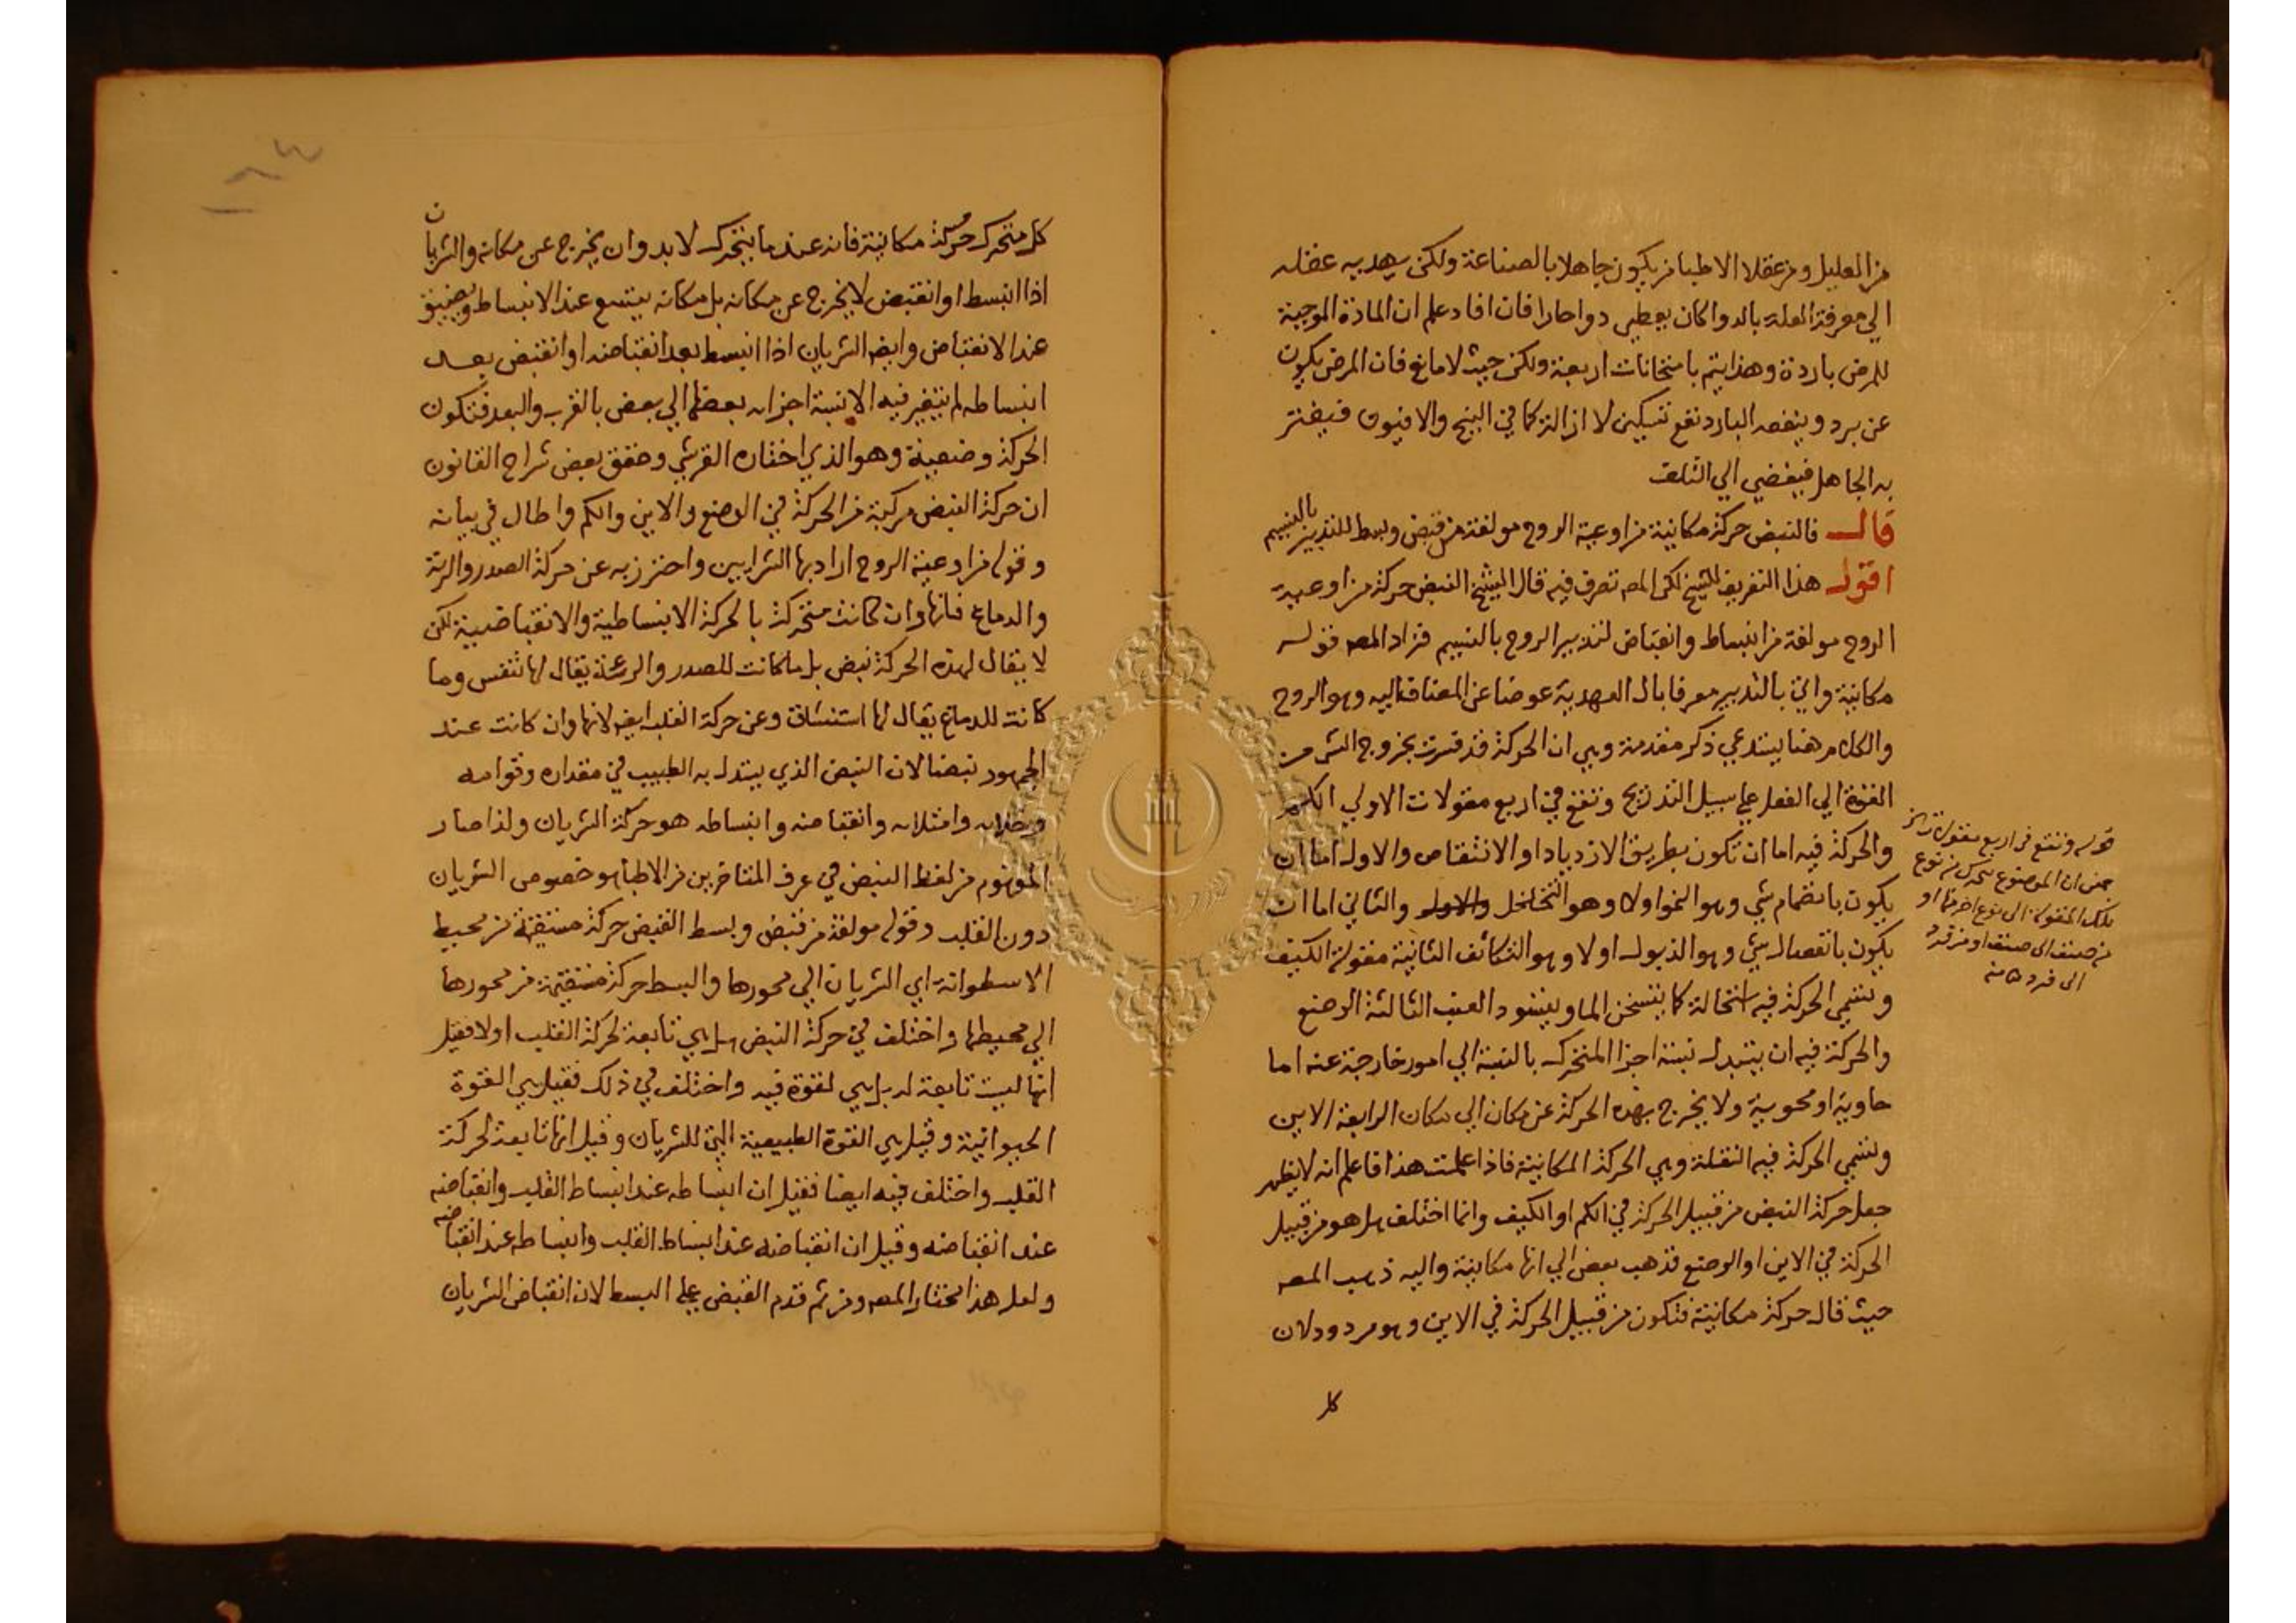 من العليل ومن عقلا الاطبا من يكون جاهلا بالصناعة ولكن يهديه عقله
الي معرفة العلة بالدوا كان يعطي دوا حارا فان افاد علم ان المادة الموجبة
للمرض باردة وهذا يتم بامتحانات اربعة ولكن حيث لا مانع فان المرض يكون
عن برد وينفعه البارد نفع تسكين لا ازالة كما في البنج والافيون فيغتر
به الجاهل فيفضي الي التلف
قال فالنبض حركة مكانية من اوعية الروح مولفة من قبض وبسط للتدبير بالنسيم
اقول هذا التعريف للشيخ لكن المص تصرف فيه قال الشيخ النبض حركة من اوعية
الروح مولفة من انبساط وانقباض لتدبير الروح بالنسيم فزاد المص قوله
مكانية واتي بالتدبير معرفا بال العهدية عوضا عن المضاف اليه وهو الروح
والكلام هنا يستدعي ذكر مقدمة وهي ان الحركة قد فسرت بخروج الشي من
القوة الي الفعل علي سبيل التدريج وتقع في اربع مقولات الاولي الكم
والحركة فيه اما ان تكون بطريق الازدياد او الانتقاص والاول اما ان
يكون بانضمام شي وهو النمو اولا وهو التخلخل والاول والثاني اما ان
يكون بانفصال شي وهو الذبول اولا وهو التكاثف الثانية مقولة الكيف
وتسمي الحركة فيه استحالة كما يتسخن الما ويتسود العنب الثالثة الوضع
والحركة فيه ان يتبدل نسبة اجزا المتحرك بالنسبة الي امور خارجة عنه اما
حاوية او محوية ولا يخرج بهذه الحركة عن مكان الي مكان الرابعة الاين
وتسمي الحركة فيه النقلة وهي الحركة المكانية فاذا علمت هذا فاعلم انه لا يظهر
جعل حركة النبض من قبيل الحركة في الكم او الكيف وانما اختلف هل هو من قبيل
الحركة في الاين او الوضع فذهب بعض الي انها مكانية واليه ذهب المص
حيث قال حركة مكانية فتكون من قبيل الحركة في الاين وهو مردود لان
كل
قوله وتقع في اربع مقولات الخ
معنى ان الموضوع يتحرك من نوع
تلك المقولة الى نوع اخر منها او
من صنف الى صنف او من فرد
الى فرد منه
كل متحرك حركة مكانية فانه عندما يتحرك لا بد وان يخرج عن مكانه والشريان
اذا انبسط او انقبض لا يخرج عن مكانه بل مكانه يتسع عند الانبساط ويضيق
عند الانقباض وايضا الشريان اذا انبسط بعد انقباضه او انقبض بعد
انبساطه لم يتغير فيه الا نسبة اجزاه بعضها الي بعض بالقرب والبعد فتكون
الحركة وضعية وهو الذي اختاره القرشي وحقق بعض شراح القانون
ان حركة النبض مركبة من الحركة في الوضع والاين والكم واطال في بيانه
وقوله من اوعية الروح اراد بها الشرايين واحترز به عن حركة الصدر والرية
والدماغ فانها وان كانت متحركة بالحركة الانبساطية والانقباضية لكن
لا يقال لهذه الحركة نبض بل ما كانت للصدر والرية يقال لها تنفس وما
كانت للدماغ يقال لها استنشاق وعن حركة القلب ايضا لانها وان كانت عند
الجمهور نبضا لان النبض الذي يستدل به الطبيب في مقداره وقوامه
وخلاه وامتلاه وانقباضه وانبساطه هو حركة الشريان ولذا صار
المفهوم من لفظ النبض في عرف المتاخرين من الاطبا هو خصوص الشريان
دون القلب وقوله مولفة من قبض وبسط القبض حركة مستقيمة من محيط
الاسطوانة اي الشريان الي محورها والبسط حركة مستقيمة من محورها
الي محيطها واختلف في حركة النبض هل هي تابعة لحركة القلب اولا فقيل
انها ليست تابعة له بل هي لقوة فيه واختلف في ذلك فقيل هي القوة
الحيوانية وقيل هي القوة الطبيعية التي للشريان وقيل انها تابعة لحركة
القلب واختلف فيه ايضا فقيل ان انبساطه عند انبساط القلب وانقباضه
عند انقباضه وقيل ان انقباضه عند انبساط القلب وانبساطه عند انقباضه
ولعل هذا مختار المص ومن ثم قدم القبض علي البسط لان انقباض الشريان